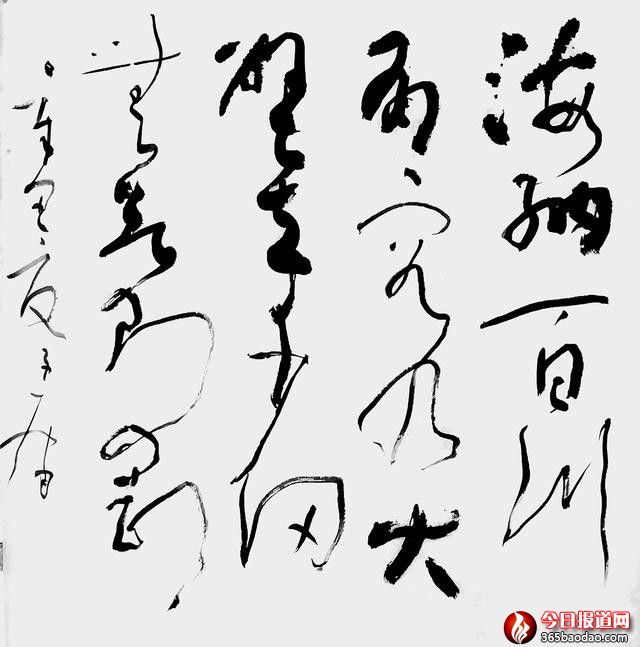 海納百川
有容乃大
壁立千仞
無欲則剛
今日报道网
365baodao.com